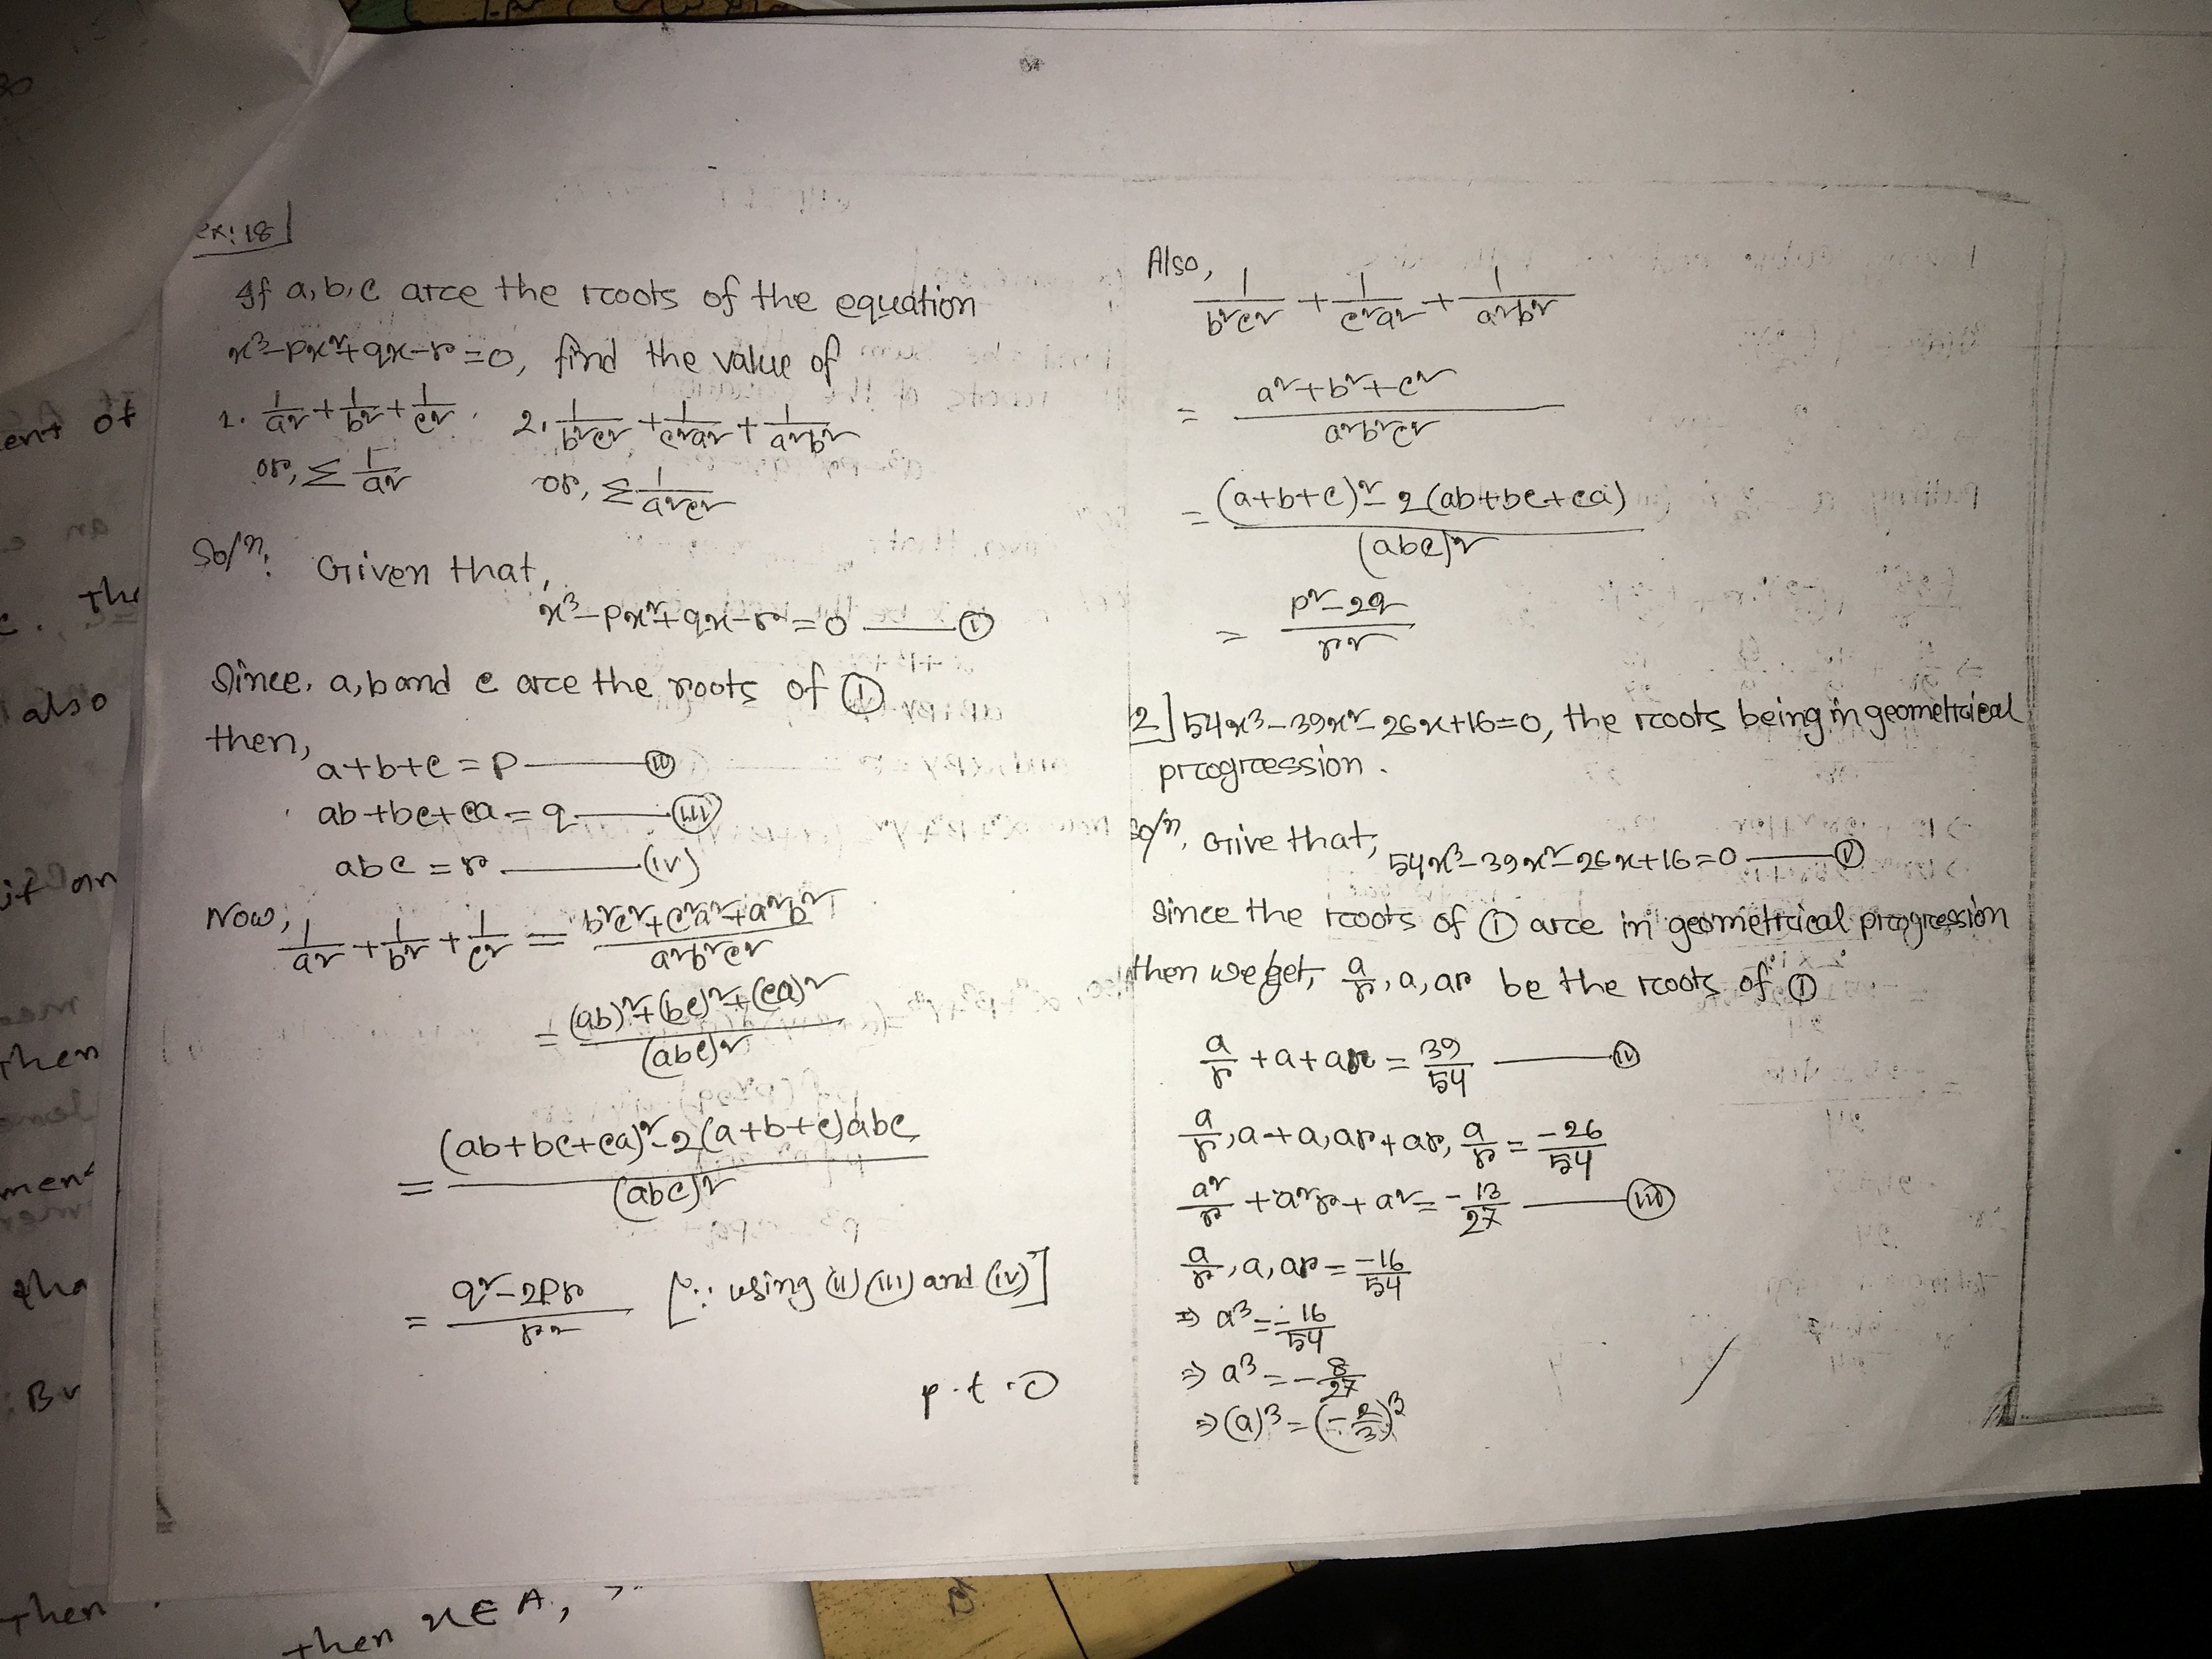 ex: 18
If a, b, c are the roots of the equation
x³-px²+qx-r=0, find the value of
1. 1/a² + 1/b² + 1/c². 2. 1/b²c² + 1/c²a² + 1/a²b²
or, Σ 1/a² or, Σ 1/a²c²
Solⁿ: Given that,
x³-px²+qx-r=0 —— (i)
Since, a, b and c are the roots of (i)
then,
a+b+c = p —— (ii)
ab+bc+ca = q —— (iii)
abc = r —— (iv)
Now,
1/a² + 1/b² + 1/c² = (b²c²+c²a²+a²b²)/(a²b²c²)
= ((ab)²+(bc)²+(ca)²)/(abc)²
= ((ab+bc+ca)²-2(a+b+c)abc)/(abc)²
= (q²-2pr)/r² [∵ using (ii) (iii) and (iv)]
p.t.o
Also,
1/b²c² + 1/c²a² + 1/a²b²
= (a²+b²+c²)/(a²b²c²)
= ((a+b+c)²-2(ab+bc+ca))/(abc)²
= (p²-2q)/r²
2] 54x³-39x²-26x+16=0, the roots being in geometrical
progression.
Solⁿ. Give that,
54x³-39x²-26x+16=0 —— (i)
Since the roots of (i) are in geometrical progression
then we get, a/r, a, ar be the roots of (i)
a/r + a + ar = 39/54 —— (ii)
a/r, a + a, ar + ar, a/r = -26/54
a²/r + a²r + a² = -13/27 —— (iii)
a/r, a, ar = -16/54
⇒ a³ = -16/54
⇒ a³ = -8/27
⇒ (a)³ = (-2/3)³
ent of
an
the
also
it an
then
men
tha
: Bu
then
then x∈A,